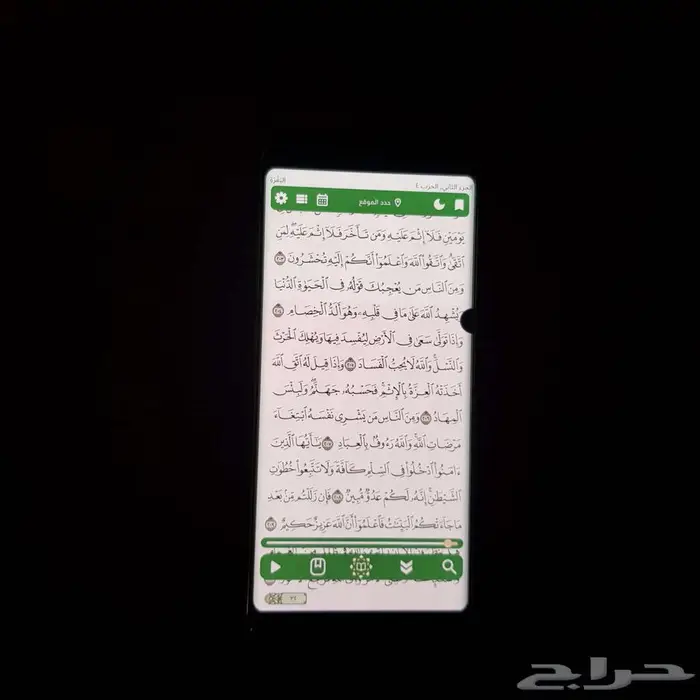 الجزء الثاني, الحزب ٤
البقرة
حدد الموقع
يَوْمَيْنِ فَلَآ إِثْمَ عَلَيْهِ وَمَن تَأَخَّرَ فَلَآ إِثْمَ عَلَيْهِ لِمَنِ
ٱتَّقَىٰ وَٱتَّقُوا۟ ٱللَّهَ وَٱعْلَمُوٓا۟ أَنَّكُمْ إِلَيْهِ تُحْشَرُونَ ٢٠٣
وَمِنَ ٱلنَّاسِ مَن يُعْجِبُكَ قَوْلُهُۥ فِى ٱلْحَيَوٰةِ ٱلدُّنْيَا
وَيُشْهِدُ ٱللَّهَ عَلَىٰ مَا فِى قَلْبِهِۦ وَهُوَ أَلَدُّ ٱلْخِصَامِ ٢٠٤
وَإِذَا تَوَلَّىٰ سَعَىٰ فِى ٱلْأَرْضِ لِيُفْسِدَ فِيهَا وَيُهْلِكَ ٱلْحَرْثَ
وَٱلنَّسْلَ وَٱللَّهُ لَا يُحِبُّ ٱلْفَسَادَ ٢٠٥ وَإِذَا قِيلَ لَهُ ٱتَّقِ ٱللَّهَ
أَخَذَتْهُ ٱلْعِزَّةُ بِٱلْإِثْمِ فَحَسْبُهُۥ جَهَنَّمُ وَلَبِئْسَ
ٱلْمِهَادُ ٢٠٦ وَمِنَ ٱلنَّاسِ مَن يَشْرِى نَفْسَهُ ٱبْتِغَآءَ
مَرْضَاتِ ٱللَّهِ وَٱللَّهُ رَءُوفٌۢ بِٱلْعِبَادِ ٢٠٧ يَٰٓأَيُّهَا ٱلَّذِينَ
ءَامَنُوا۟ ٱدْخُلُوا۟ فِى ٱلسِّلْمِ كَآفَّةً وَلَا تَتَّبِعُوا۟ خُطُوَٰتِ
ٱلشَّيْطَٰنِ إِنَّهُۥ لَكُمْ عَدُوٌّ مُّبِينٌ ٢٠٨ فَإِن زَلَلْتُم مِّنۢ بَعْدِ
مَا جَآءَتْكُمُ ٱلْبَيِّنَٰتُ فَٱعْلَمُوٓا۟ أَنَّ ٱللَّهَ عَزِيزٌ حَكِيمٌ ٢٠٩
٣٢
حراج